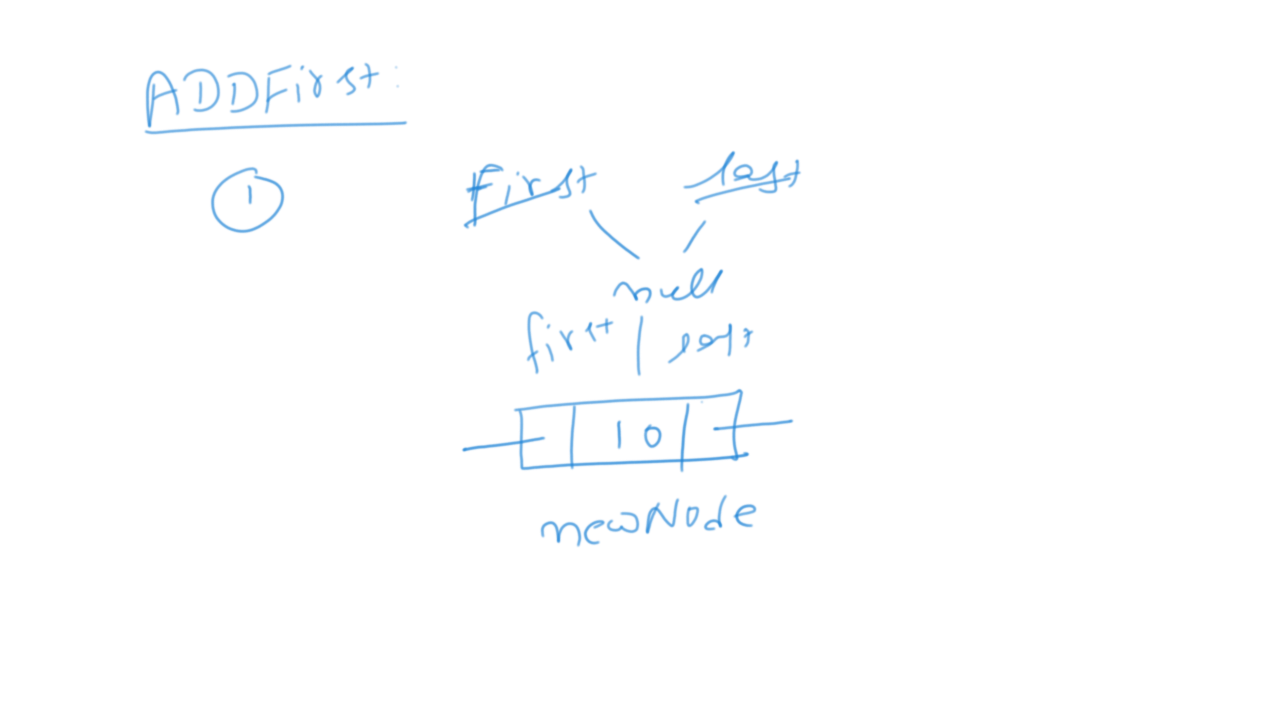 ADDFirst:
1 First last
null
first | last
10
newNode